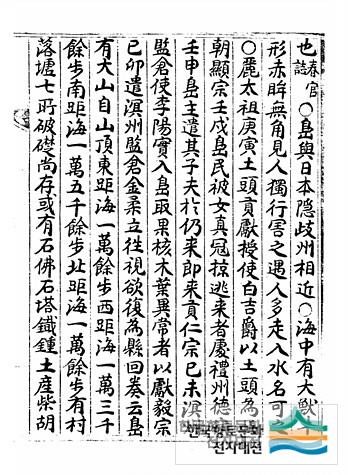 也春官誌○島與日本隱歧州相近○海中有大獸牛
形赤眸無角見人獨行害之遇人多走入水名可
○麗太祖庚寅土頭貢獻授使白吉爵以土頭為
朝顯宗壬戌島民被女真冠掠逃来者處禮州德
壬申島主遣其子夫於仍来即来貢仁宗己未溟
監倉使李陽實入島取果核木葉異常者以獻毅宗
己卯遣溟州監倉金柔立徃視欲復為縣回奏云島
有大山自山頂東距海一萬餘步西距海一萬三千
餘步南距海一萬五千餘步北距海一萬餘步有村
落墟七所破礎尚存或有石佛石塔鐵鍾土産柴胡
한국향토문화
전자대전